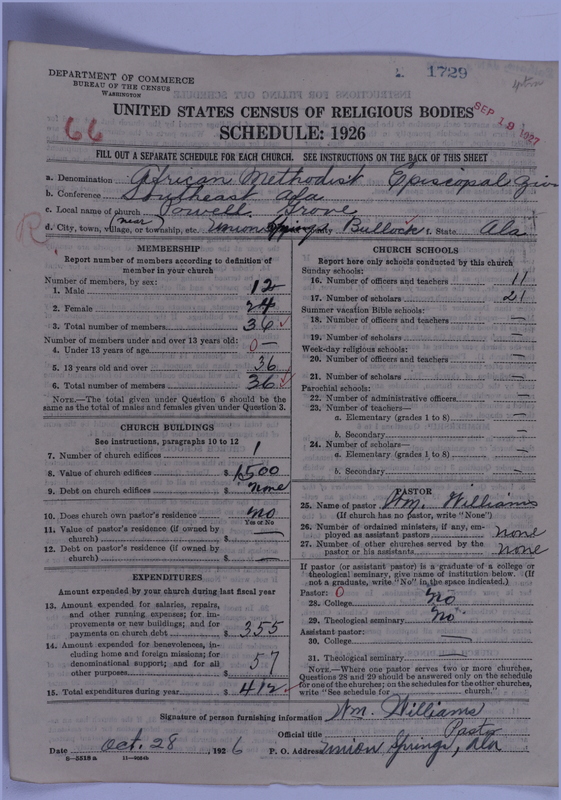 DEPARTMENT OF COMMERCE
BUREAU OF THE CENSUS
WASHINGTON
1729
66
SEP 19 1927
UNITED STATES CENSUS OF RELIGIOUS BODIES
SCHEDULE: 1926
FILL OUT A SEPARATE SCHEDULE FOR EACH CHURCH. SEE INSTRUCTIONS ON THE BACK OF THIS SHEET
a. Denomination African Methodist Episcopal Zion
b. Conference Southeast Ala
c. Local name of church Powell Grove
R
d. City, town, village, or township, etc. (near) Union Springs Bullock f. State Ala
MEMBERSHIP
Report number of members according to definition of member in your church
Number of members, by sex:
1. Male 12
2. Female 24
3. Total number of members 36
Number of members under and over 13 years old:
4. Under 13 years of age 0 —
5. 13 years old and over 36
6. Total number of members 36
NOTE.—The total given under Question 6 should be the same as the total of males and females given under Question 3.
CHURCH BUILDINGS
See instructions, paragraphs 10 to 12
7. Number of church edifices 1
8. Value of church edifices $ 1,500
9. Debt on church edifices $ none
10. Does church own pastor's residence No
Yes or No
11. Value of pastor's residence (if owned by church) $ —
12. Debt on pastor's residence (if owned by church) $ —
EXPENDITURES
Amount expended by your church during last fiscal year
13. Amount expended for salaries, repairs, and other running expenses; for improvements or new buildings; and for payments on church debt $ 355
14. Amount expended for benevolences, including home and foreign missions; for denominational support; and for all other purposes $ 57
15. Total expenditures during year $ 412
CHURCH SCHOOLS
Report here only schools conducted by this church
Sunday schools:
16. Number of officers and teachers 11
17. Number of scholars 21
Summer vacation Bible schools:
18. Number of officers and teachers —
19. Number of scholars —
Week-day religious schools:
20. Number of officers and teachers —
21. Number of scholars —
Parochial schools:
22. Number of administrative officers —
23. Number of teachers—
a. Elementary (grades 1 to 8) —
b. Secondary —
24. Number of scholars—
a. Elementary (grades 1 to 8) —
b. Secondary —
PASTOR
25. Name of pastor Wm. Williams
(If church has no pastor, write "None")
26. Number of ordained ministers, if any, employed as assistant pastors none
27. Number of other churches served by the pastor or his assistants none
If pastor (or assistant pastor) is a graduate of a college or theological seminary, give name of institution below. (If not a graduate, write "No" in the space indicated.)
Pastor: 0
28. College No
29. Theological seminary No
Assistant pastor:
30. College —
31. Theological seminary —
NOTE.—Where one pastor serves two or more churches, Questions 28 and 29 should be answered only on the schedule for one of the churches; on the schedules for the other churches, write "See schedule for church."
Signature of person furnishing information Wm. Williams
Official title Pastor
Date Oct. 28, 1926 P. O. Address Union Springs, Ala